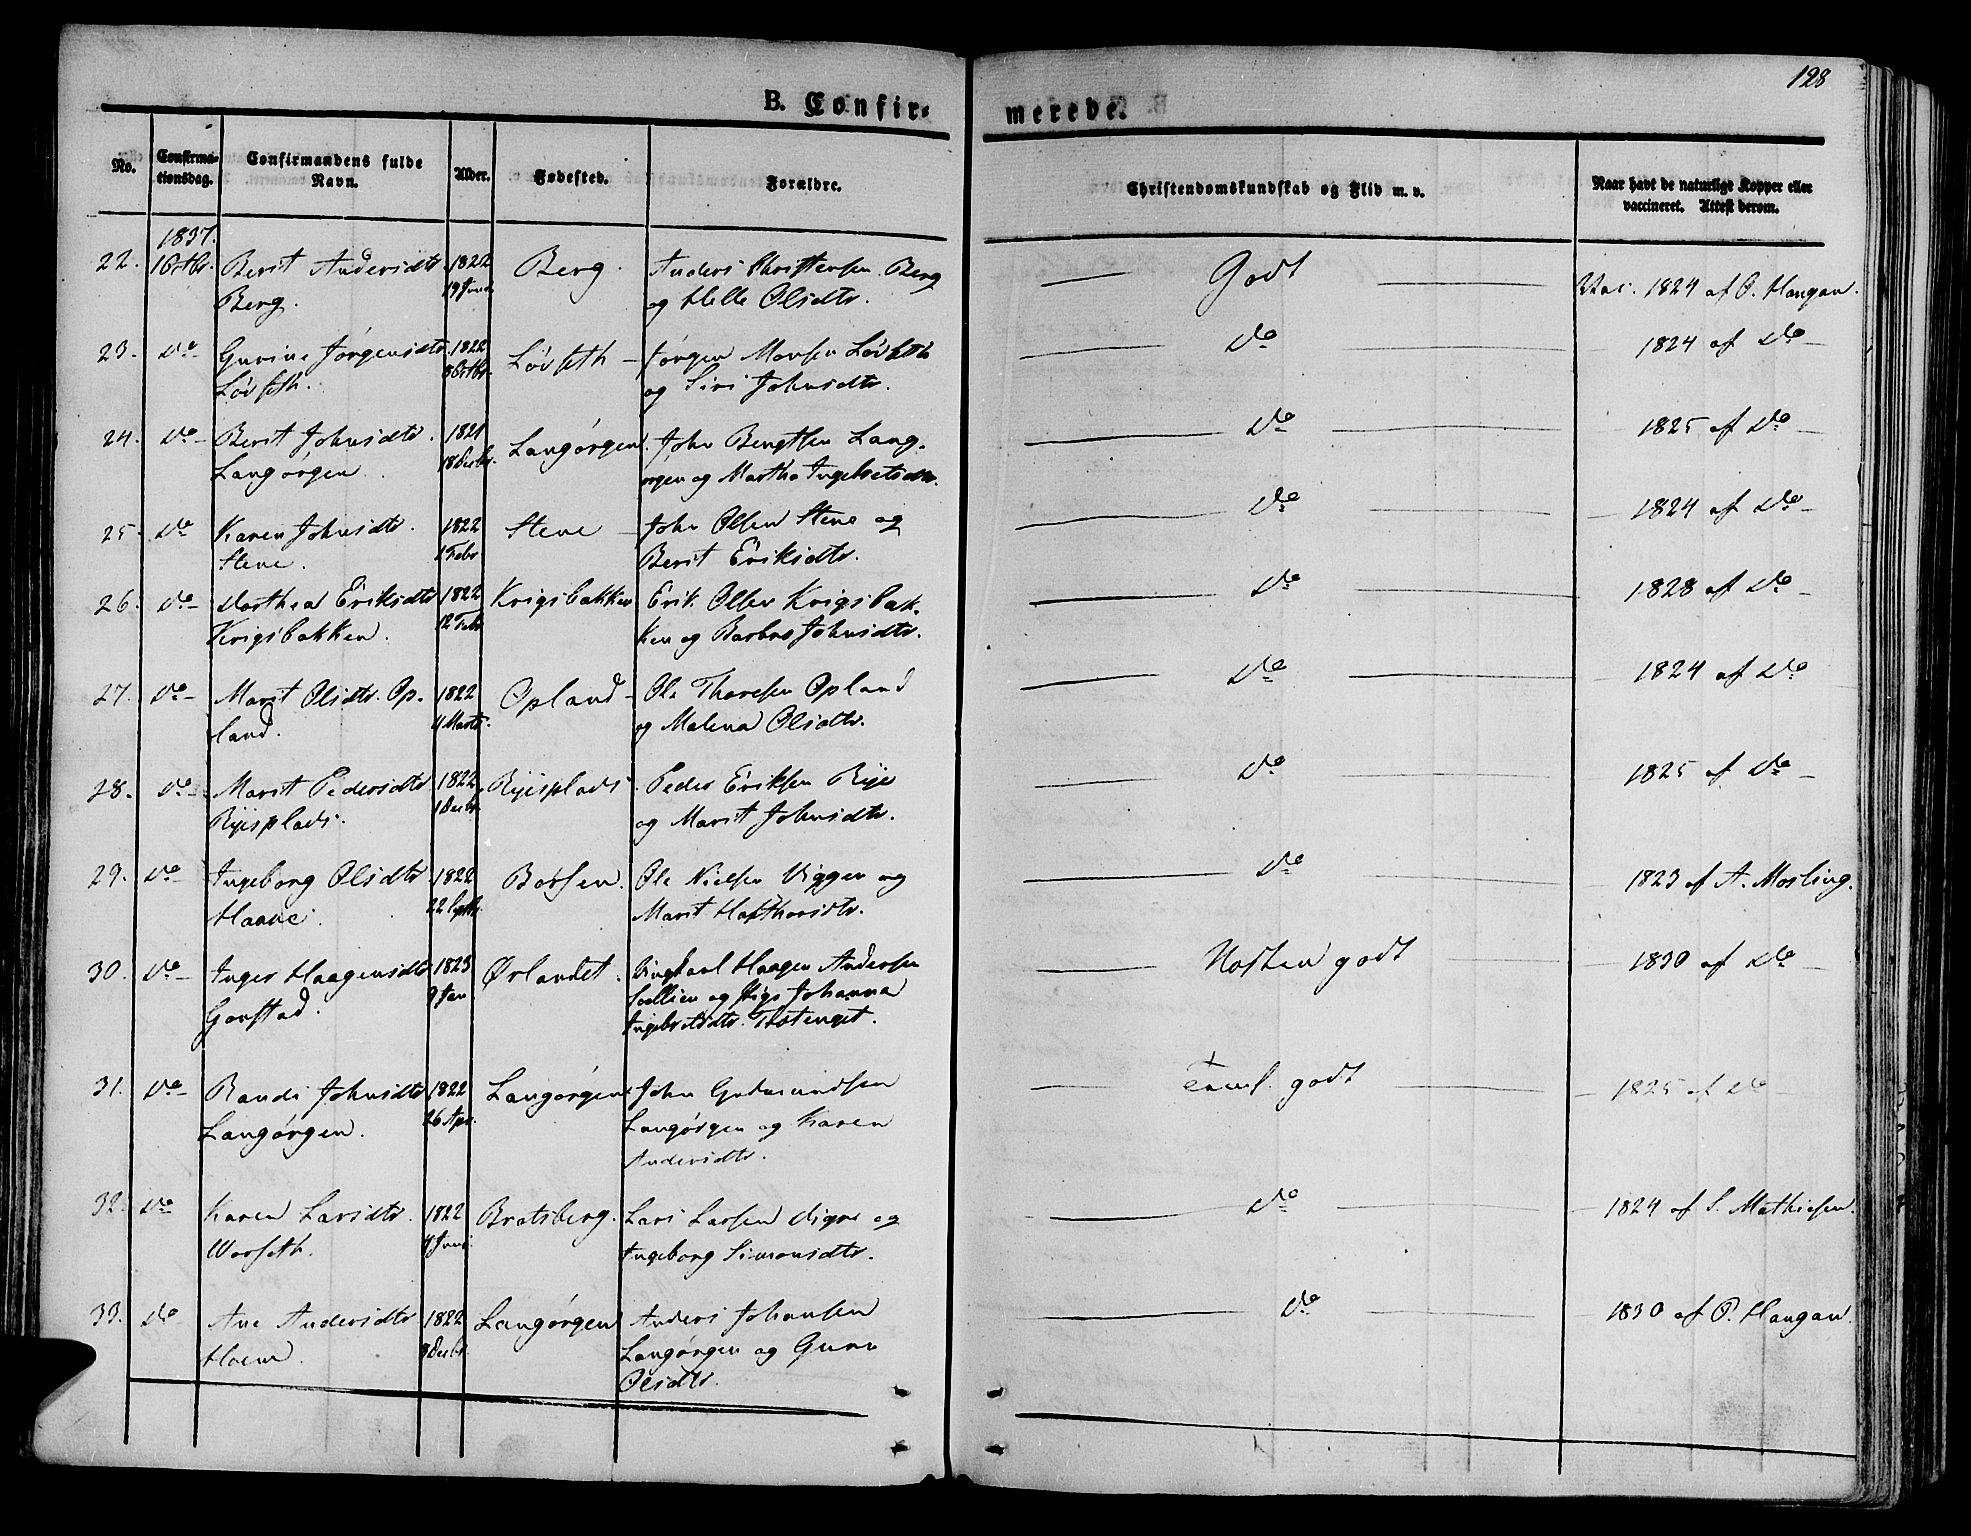 128
B. Confir-
merede.
No.
Confirma-
tionsdag.
Confirmandens fulde
Navn.
Alder.
Fødested.
Forældre.
Christendomskundskab og Flid m. v.
Naar havt de naturlige Kopper eller
vaccineret. Attest derom.
1837.
22. 1 Octbr. Berit Andersdtr. 1822 Berg. Anders Christensen Berg Godt Vac. 1824 af P. Haugan.
Berg. 19 Juni og Helle Olsdtr.
23. Do Gurine Jørgensdtr. 1822 Løvseth Jørgen Monsen Løvseth Do 1824 af Do
Løvseth. 8 Octbr. og Siri Johnsdtr.
24. Do Berit Johnsdtr. 1821 Langørgen. John Bengtsen Lang- Do 1825 af Do
Langørgen. 18 Decbr. ørgen og Martha Ingebretsdtr.
25. Do Karen Johnsdtr. 1822 Stene John Olsen Stene og Do 1824 af Do
Stene. Febr Berit Eriksdtr.
26. Do Dorthea Eriksdtr 1822 Krigsbakken Erik Olsen Krigsbak- Do 1828 af Do
Krigsbakken. 12 Febr ken og Barbro Johnsdtr.
27. Do Marit Olsdtr. Op- 1822 Opland Ole Thoresen Opland Do 1824 af Do
land. 11 Marts. og Malena Olsdtr.
28. Do Marit Pedersdtr 1822 Ryesplads Peder Eriksen Rye Do 1825 af Do
Ryesplads. 1 Decbr. og Marit Johnsdtr.
29. Do Ingeborg Olsdtr. 1822 Børsen. Ole Nielsen Viggen og Do 1823 af A. Mosling.
Haave. 22 Septbr. Marit Hafthorsdtr.
30. Do Inger Haagensdtr 1823 Ørlandet. Ungkarl Haagen Andersen Næsten godt 1830 af Do
Gonstad. 9 Jan og Pige Johanna
Ingebretsdtr.
31. Do Randi Johnsdtr 1822 Langørgen John Gudmundsen Teml. godt 1825 af Do
Langørgen. 26 Apr. Langørgen og Karen
Andersdtr.
32. Do Karen Larsdtr. 1822 Bratsberg. Lars Larsen Digre og Do 1824 af S. Mathiesen.
Worseth. Juni Ingeborg Simonsdtr.
33. Do Ane Andersdtr 1822 Langørgen Anders Johansen Do 1830 af P. Haugan.
Hoem. 8 Decbr. Langørgen og Guru
Olsdtr.